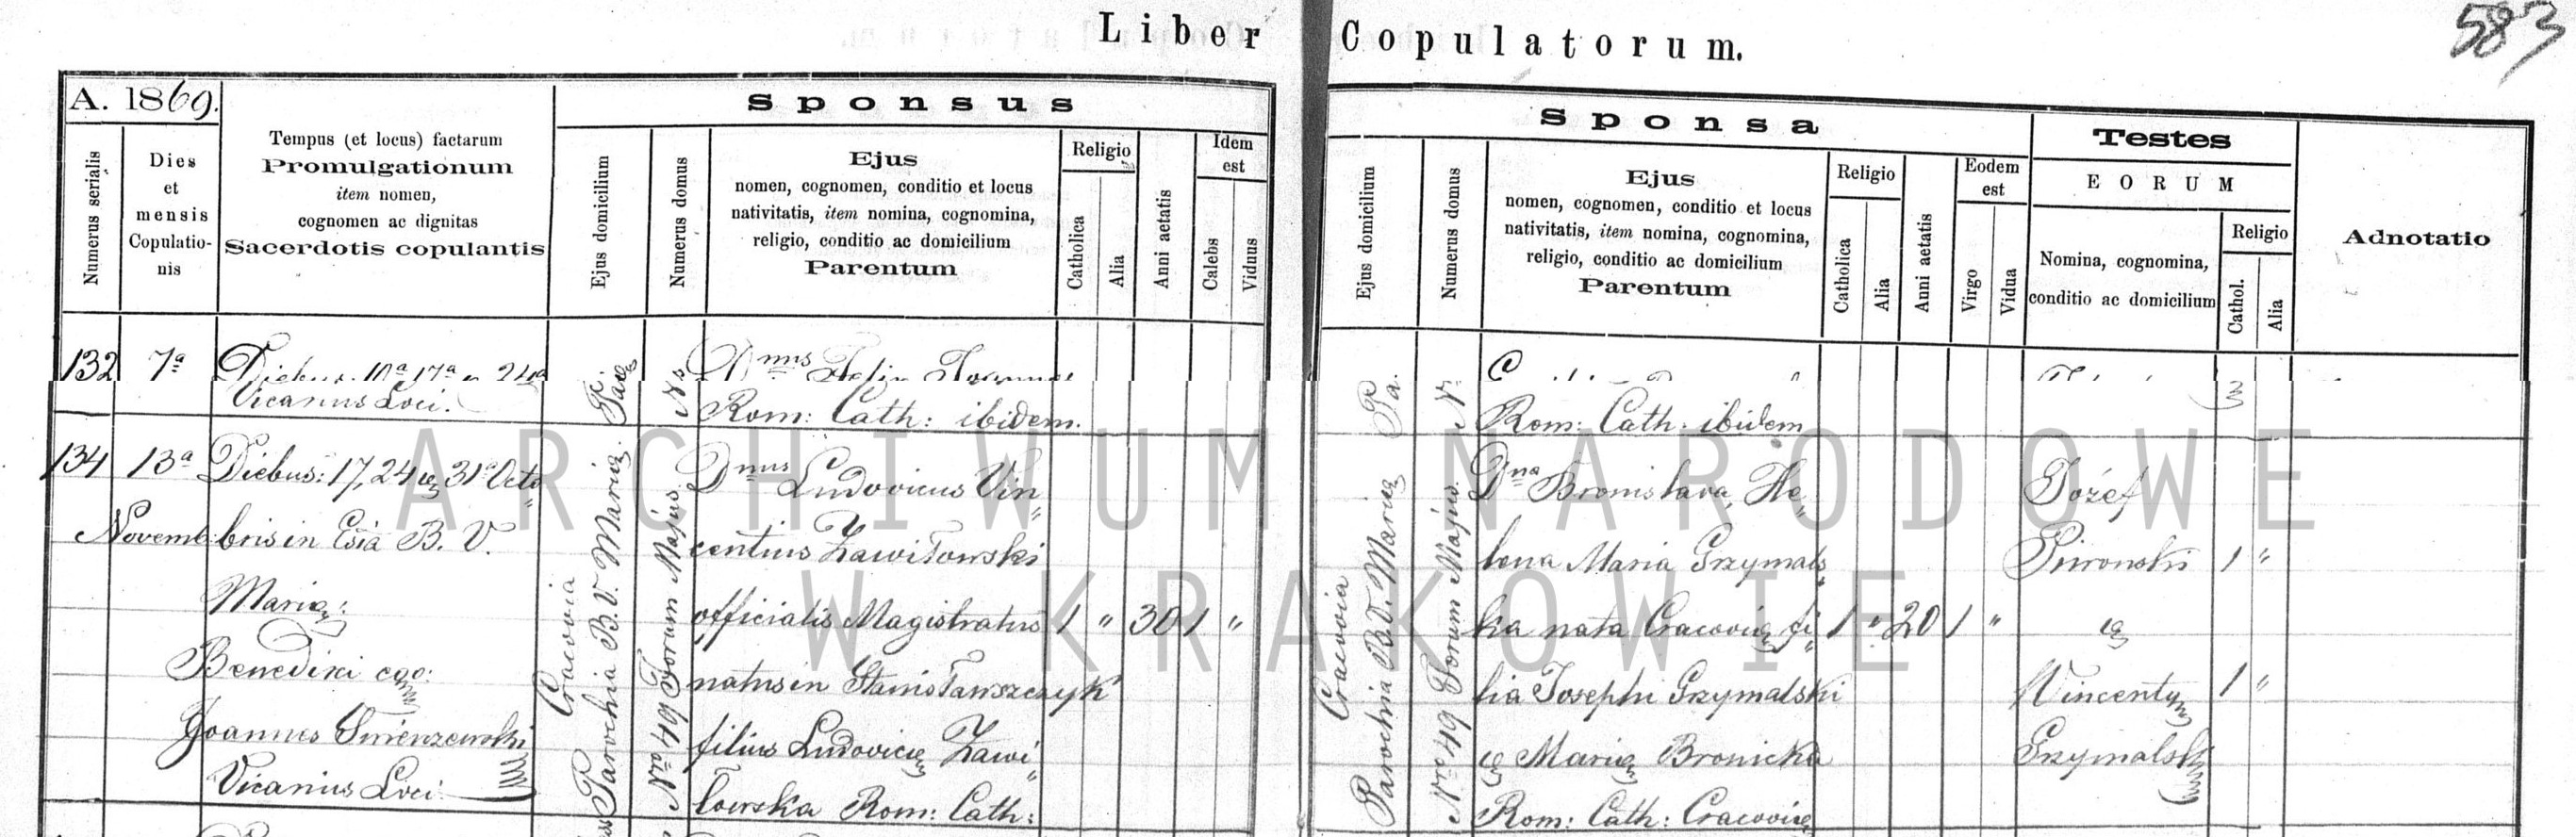 Liber Copulatorum.
583
A. 1869.
Numerus serialis
Dies
et
mensis
Copulatio-
nis
Tempus (et locus) factarum
Promulgationum
item nomen,
cognomen ac dignitas
Sacerdotis copulantis
Sponsus
Ejus domicilium
Numerus domus
Ejus
nomen, cognomen, conditio et locus
nativitatis, item nomina, cognomina,
religio, conditio ac domicilium
Parentum
Religio
Catholica
Alia
Anni aetatis
Idem
est
Calebs
Viduus
Sponsa
Ejus domicilium
Numerus domus
Ejus
nomen, cognomen, conditio et locus
nativitatis, item nomina, cognomina,
religio, conditio ac domicilium
Parentum
Religio
Catholica
Alia
Anni aetatis
Eodem
est
Virgo
Vidua
Testes
EORUM
Nomina, cognomina,
conditio ac domicilium
Religio
Cathol.
Alia
Adnotatio
132
7a
Diebus
Dnus Felix Joannes
Vicarius Loci.
Rom: Cath: ibidem.
Rom: Cath: ibidem
134
13a
Novem
Diebus: 17, 24 et 31a Octo
bris in Esia B. V.
Mariae:
Benedixi ego:
Joannes
Vicarius Loci
Cracovia
Parochia B. V. Mariae
Nro 49 Forum Majus.
Dnus Ludovicus Vin
centius Zawiłowski
officialis Magistratus
natus in Stanisławszczyk
filius Ludovicae Zawi
łowska Rom: Cath:
1 " 30 1 "
Cracovia
Parochia B. V. Mariae
Nro 49 Forum Majus.
Dna Bronislava, He
lena Maria Grzymals
ka nata Cracoviae fi
lia Josephi Grzymalski
et Mariae Bronicka
Rom: Cath: Cracoviae
1 " 20 1 "
Józef
1 "
et
Wincenty
Grzymalski
1 "
ARCHIWUM NARODOWE
W KRAKOWIE